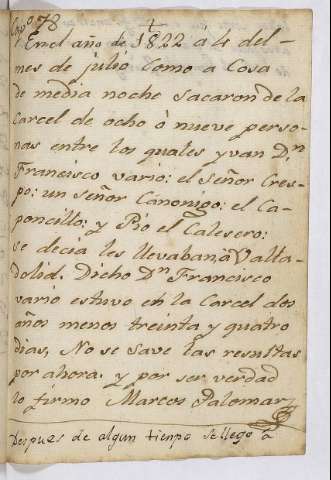 En el año de 1822 á 4 del
mes de julio como a Cosa
de media noche sacaron de la
Carcel de ocho ò nueve perso-
nas entre los quales yvan Dn
Francisco vario: el Señor Cres-
po: un señor Canonigo: el Ca-
poncillo: y Pio el Calesero:
se decia les llevaban à Valla-
dolid. Dicho Dn Francisco
vario estuvo en la Carcel dos
años menos treinta y quatro
dias, No se save las resultas
por ahora. y por ser verdad
lo firmo Marcos Palomar
Despues de algun tienpo se llego a